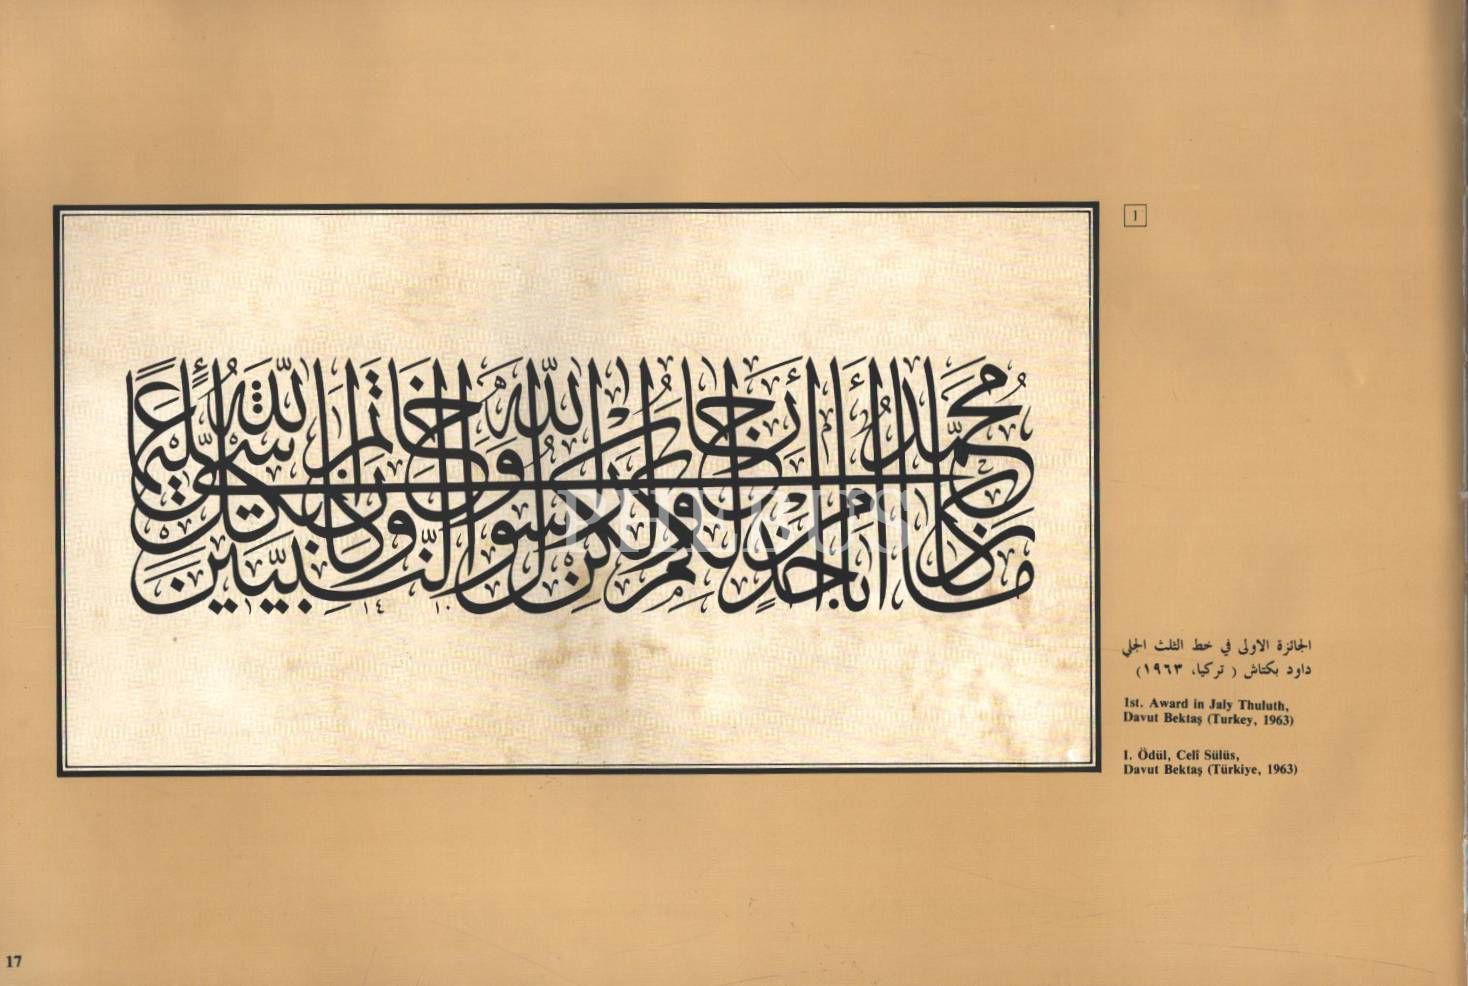 ما كان محمد أبا أحد من رجالكم ولكن رسول الله وخاتم النبيين وكان الله بكل شيء عليما
١٤١٠
PHEBUS
1
الجائزة الاولى في خط الثلث الجلي
داود بكتاش ( تركيا، ١٩٦٣)
1st. Award in Jaly Thuluth,
Davut Bektaş (Turkey, 1963)
1. Ödül, Celî Sülüs,
Davut Bektaş (Türkiye, 1963)
17